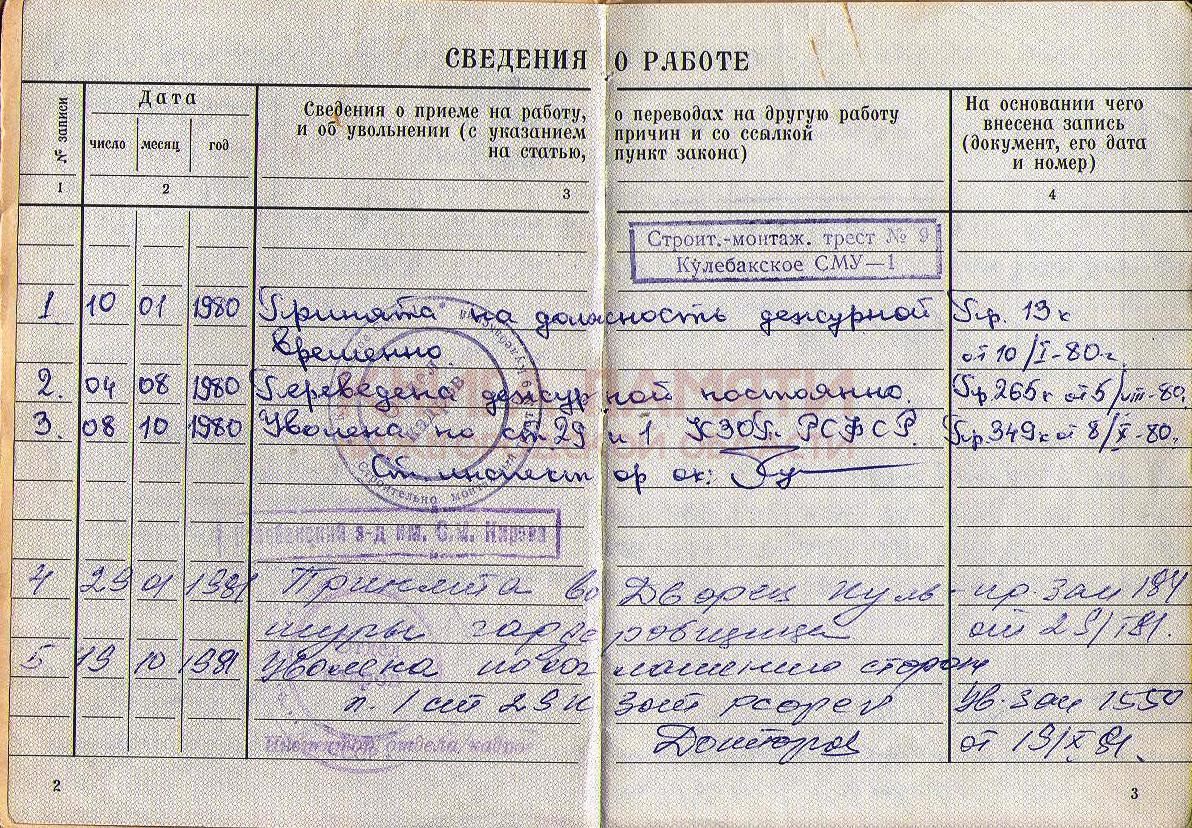 СВЕДЕНИЯ О РАБОТЕ
№ записи
Дата
число месяц год
Сведения о приеме на работу, о переводах на другую работу
и об увольнении (с указанием причин и со ссылкой
на статью, пункт закона)
На основании чего
внесена запись
(документ, его дата
и номер)
1 2 3 4
Строит.-монтаж. трест № 9
Кулебакское СМУ—1
1 10 01 1980 Принята на должность дежурной Пр. 13к
временно. от 10/I-80г.
2. 04 08 1980 Переведена дежурной постоянно. Пр 265к от 5/VIII-80.
3. 08 10 1980 Уволена по ст. 29 п 1 КЗОТ РСФСР. Пр 349к от 8/X-80.
Ст. инспектор ок:
з-д им. С.М. Кирова
4 29 01 1981 Принята во Дворец куль- пр. зап 184
туры гардеробщицей от 29/I 81.
5 19 10 1981 Уволена по соглашению сторон
п. 1 ст 29 К Зот рсфср Ув. зап 1550
от 19/X 81.
Инспектор отдела кадров
2
3